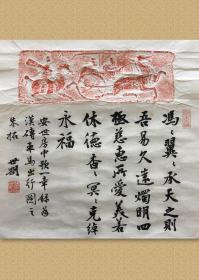 馮〻翼〻承天之則
吾易久遠燭明四
極慈惠所愛美若
休德杳〻冥〻克綽
永福
安世房中歌一章錄為
漢磚車馬出行圖之
朱拓 世